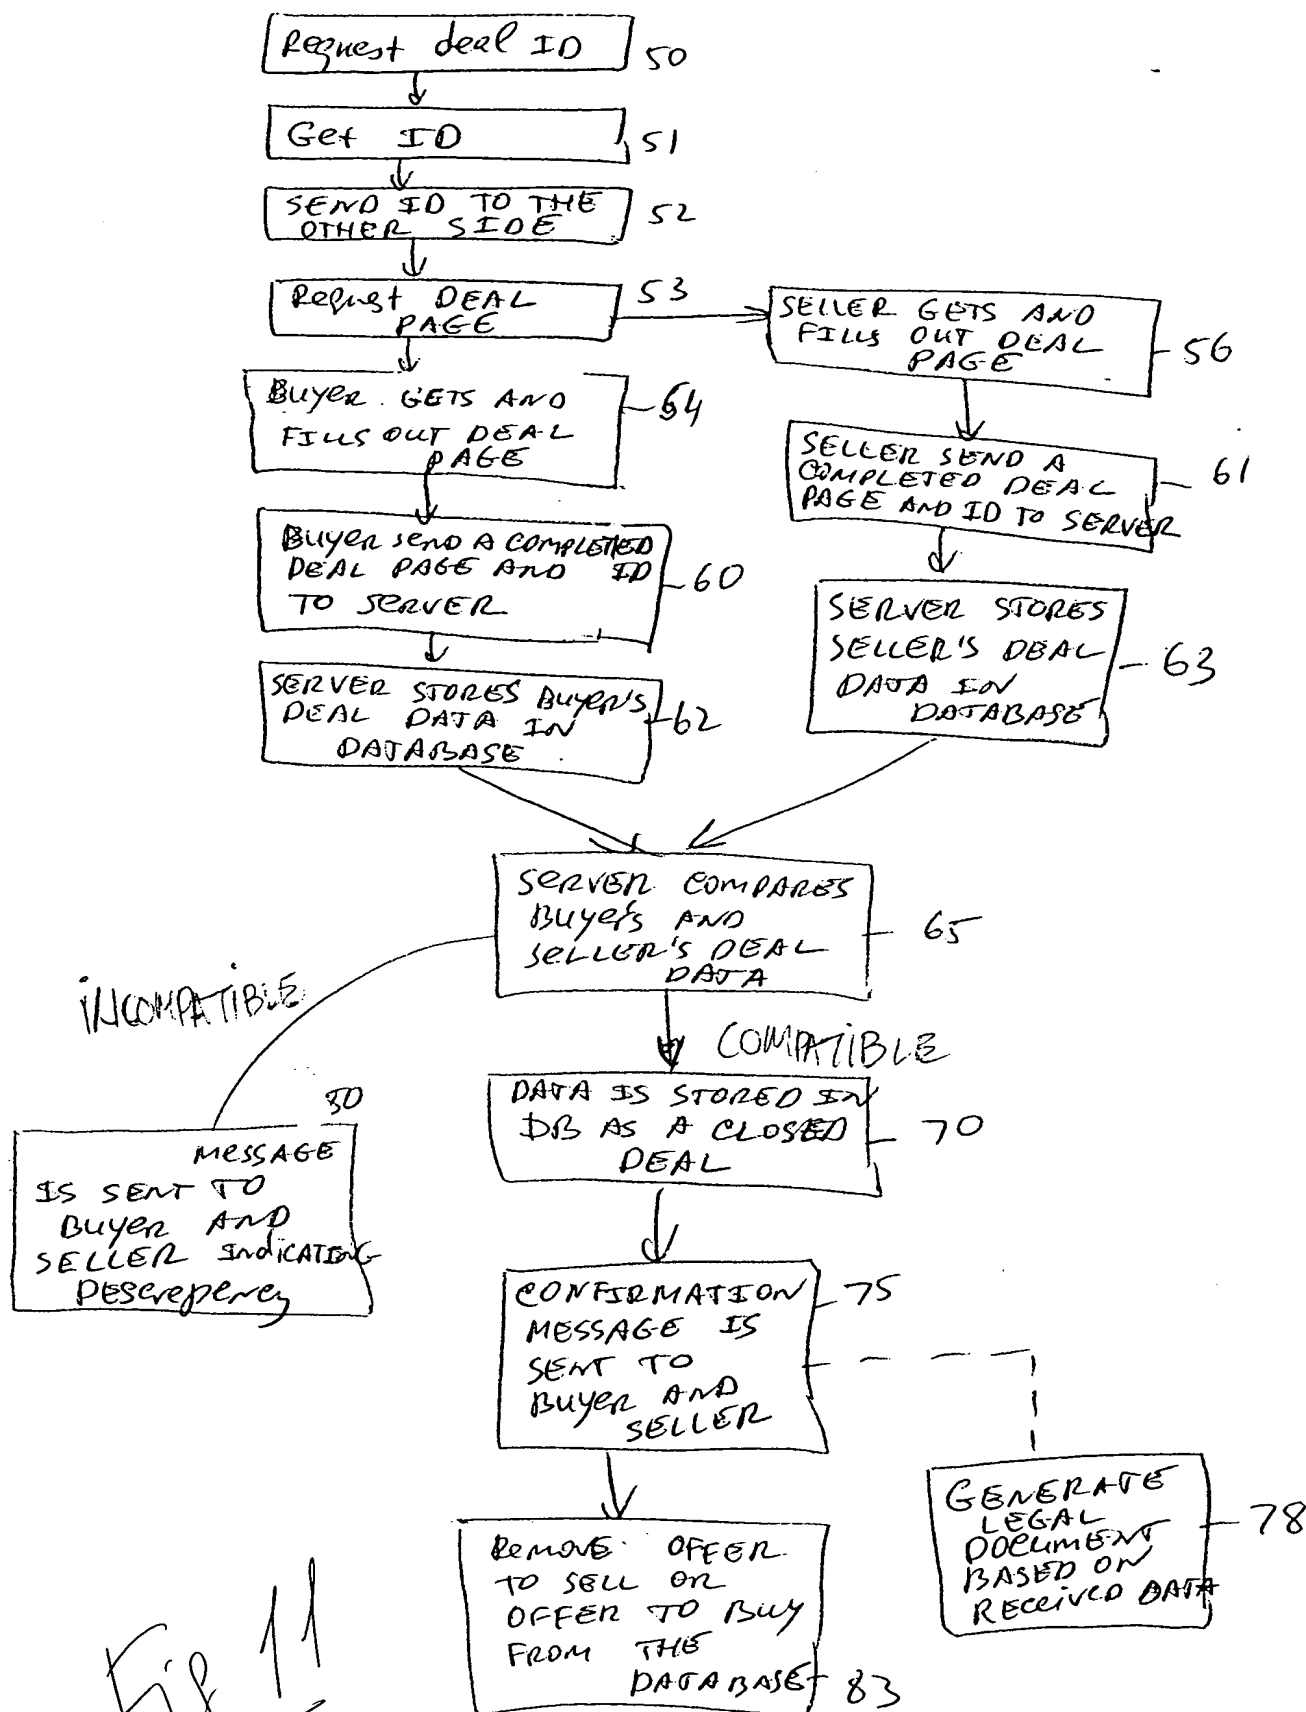 Request deal ID
50
Get ID
51
SEND ID TO THE
OTHER SIDE
52
Request DEAL
PAGE
53
SELLER GETS AND
FILLS OUT DEAL
PAGE
56
Buyer GETS AND
FILLS OUT DEAL
PAGE
54
SELLER SEND A
COMPLETED DEAL
PAGE AND ID TO SERVER
61
Buyer send A COMPLETED
DEAL PAGE AND ID
TO SERVER
60
SERVER STORES
SELLER'S DEAL
DATA IN
DATABASE
63
SERVER STORES Buyer's
DEAL DATA IN
DATABASE
62
SERVER COMPARES
Buyer's AND
SELLER'S DEAL
DATA
65
INCOMPATIBLE
COMPATIBLE
DATA IS STORED IN
DB AS A CLOSED
DEAL
70
MESSAGE
IS SENT TO
Buyer AND
SELLER INDICATING
DEScrepency
CONFIRMATION
MESSAGE IS
SENT TO
Buyer AND
SELLER
75
GENERATE
LEGAL
DOCUMENT
BASED ON
RECEIVED DATA
78
Remove OFFER
TO SELL OR
OFFER TO BUY
FROM THE
DATABASE
83
Fig 11